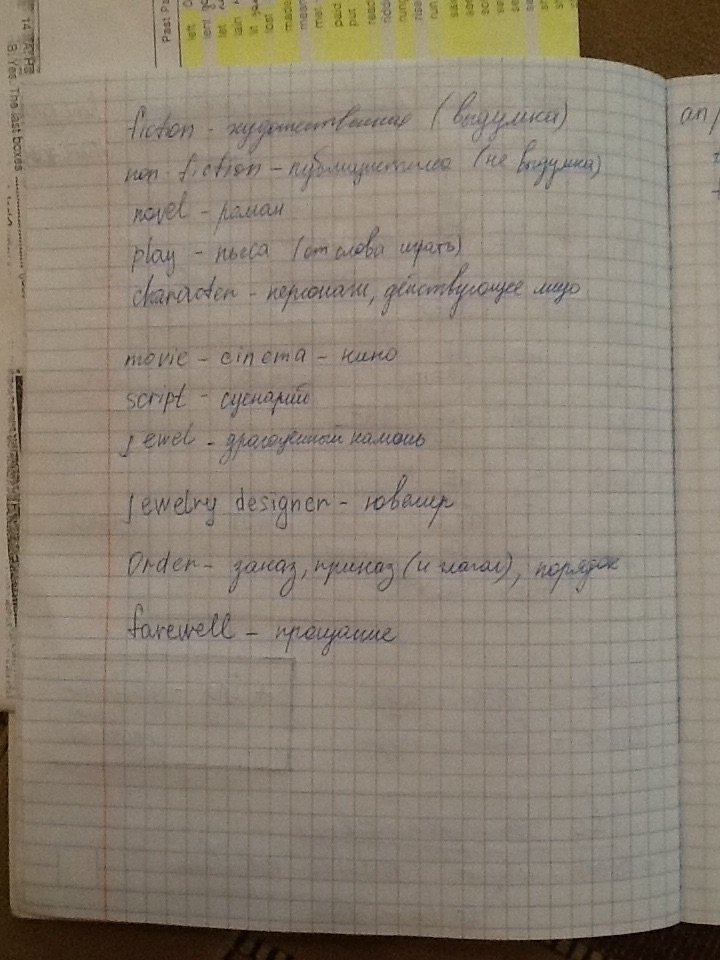 Past Pa
left
let
lost
made
mea
met
paid
put
read
run
B: Yes. The last boxes
fiction - художественная (выдумка)
non fiction - публицистика (не выдумка)
novel - роман
play - пьеса (от слова играть)
character - персонаж, действующее лицо
movie - cinema - кино
script - сценарий
jewel - драгоценный камень
jewelry designer - ювелир
Order - заказ, приказ (и глагол), порядок
farewell - прощание
an